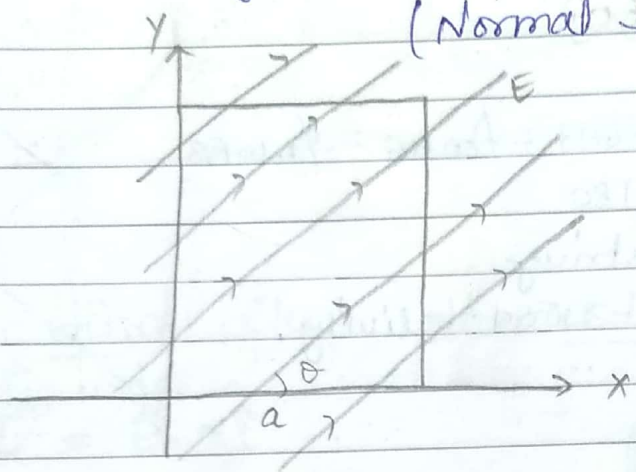 (Normal
Y
E
θ
a
X